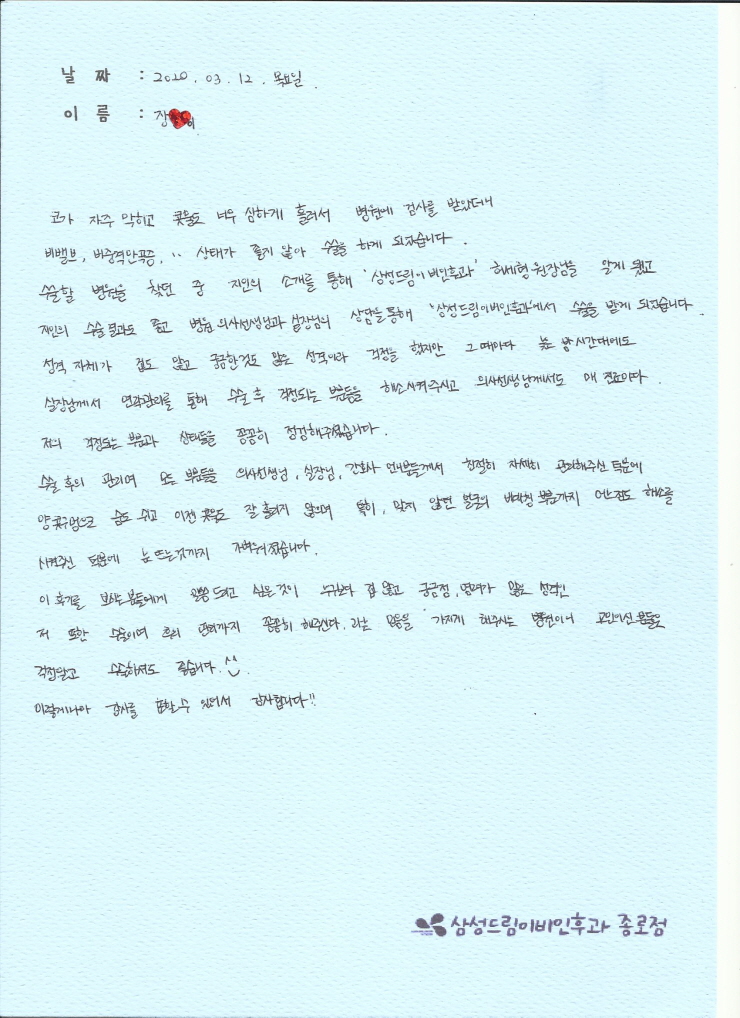 날 짜 : 2020 . 03 . 12 . 목요일 .
이 름 : 장
코가 자주 막히고 콧물도 너무 심하게 흘러서 병원에 검사를 받았더니
비밸브, 비중격만곡증, ·· 상태가 좋지 않아 수술을 하게 되었습니다.
수술할 병원을 찾던 중 지인의 소개를 통해 '삼성드림이비인후과' 허세형 원장님을 알게 됐고
지인의 수술결과도 좋고 병원 의사선생님과 실장님의 상담을 통해 '삼성드림이비인후과'에서 수술을 받게 되었습니다.
성격 자체가 겁도 많고 궁금한것도 많은 성격이라 걱정을 했지만 그때마다 늦은 밤 시간대에도
실장님께서 연락관리를 통해 수술 후 걱정되는 부분들을 해소시켜주시고 의사선생님께서도 매 진료마다
저의 걱정되는 부분과 상태들을 꼼꼼히 점검해주셨습니다.
수술 후의 관리며 모든 부분들을 의사선생님, 실장님, 간호사 언니분들께서 친절히 자세히 관리해주신 덕분에
양콧구멍으로 숨도 쉬고 이전 콧물도 잘 흘리지 않으며 특히, 맞지 않던 얼굴의 비대칭 부분까지 어느정도 해소를
시켜주신 덕분에 눈 뜨는것까지 가벼워졌습니다.
이 후기를 보시는 분들에게 말씀 드리고 싶은 것이 누구보다 겁 많고 궁금점, 염려가 많은 성격인
저 또한 수술이며 후의 관리까지 꼼꼼히 해주신다. 라는 믿음을 가지게 해주시는 병원이니 고민이신 분들은
걱정말고 수술하셔도 좋습니다. ^^
이렇게나마 감사를 표할 수 있어서 감사합니다!!
삼성드림이비인후과 종로점